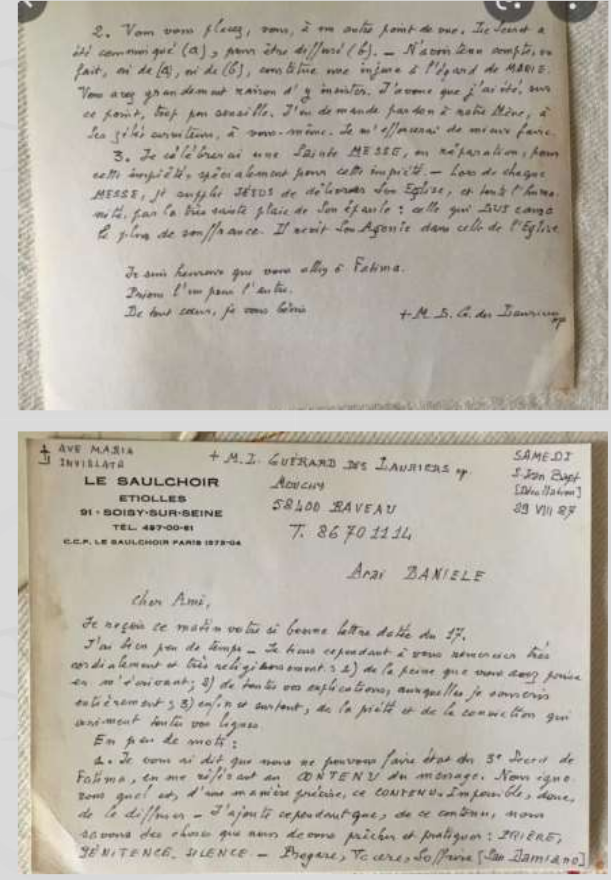 2. Vous vous placez, vous, à un autre point de vue. Le Secret a
été communiqué (a), pour être diffusé (b). — N'avoir tenu compte, en
fait, ni de (a), ni de (b), constitue une injure à l'égard de MARIE.
Vous avez grandement raison d'y insister. J'avoue que j'ai été, sur
ce point, trop peu sensible. J'en demande pardon à notre Mère, à
Ses zélés serviteurs, à vous-même. Je m'efforcerai de mieux faire.
3. Je célébrerai une Sainte MESSE, en réparation, pour
cette impiété, spécialement pour cette impiété. — Lors de chaque
MESSE, je supplie JÉSUS de délivrer Son Eglise, et toute l'huma-
nité, par la très sainte plaie de Son épaule : celle qui LUI causa
le plus de souffrance. Il revit Son Agonie dans celle de l'Eglise
Je suis heureux que vous alliez à Fatima.
Prions l'un pour l'autre.
De tout cœur, je vous bénis
+ M. L. G. des Lauriers op
AVE MARIA
+ M. L. GUÉRARD DES LAURIERS op.
SAMEDI
S. Jean Bapt
[Décollation]
29 VIII 87
LE SAULCHOIR
ETIOLLES
91 - SOISY-SUR-SEINE
TÉL. 497-00-61
C.C.P. LE SAULCHOIR PARIS 1575-04
58400 RAVEAU
T. 86 70 11 14
Arai DANIELE
Cher Ami,
Je reçois ce matin votre si bonne lettre datée du 17.
J'ai bien peu de temps — Je tiens cependant à vous remercier très
cordialement et très religieusement : 1) de la peine que vous avez prise
en m'écrivant; 2) de toutes vos explications, auxquelles je souscris
entièrement; 3) enfin et surtout, de la piété et de la conviction qui
animent toutes vos lignes.
En peu de mots :
1. Je vous ai dit que nous ne pouvons faire état du 3e Secret de
Fatima, en me référant au CONTENU du message. Nous igno-
rons quel est, d'une manière précise, ce CONTENU. Impossible, donc,
de le diffuser — J'ajoute cependant que, de ce contenu, nous
savons des choses que nous devons prêcher et pratiquer : PRIÈRE,
PÉNITENCE, SILENCE — Pregare, Tacere, Soffrire [San Damiano]